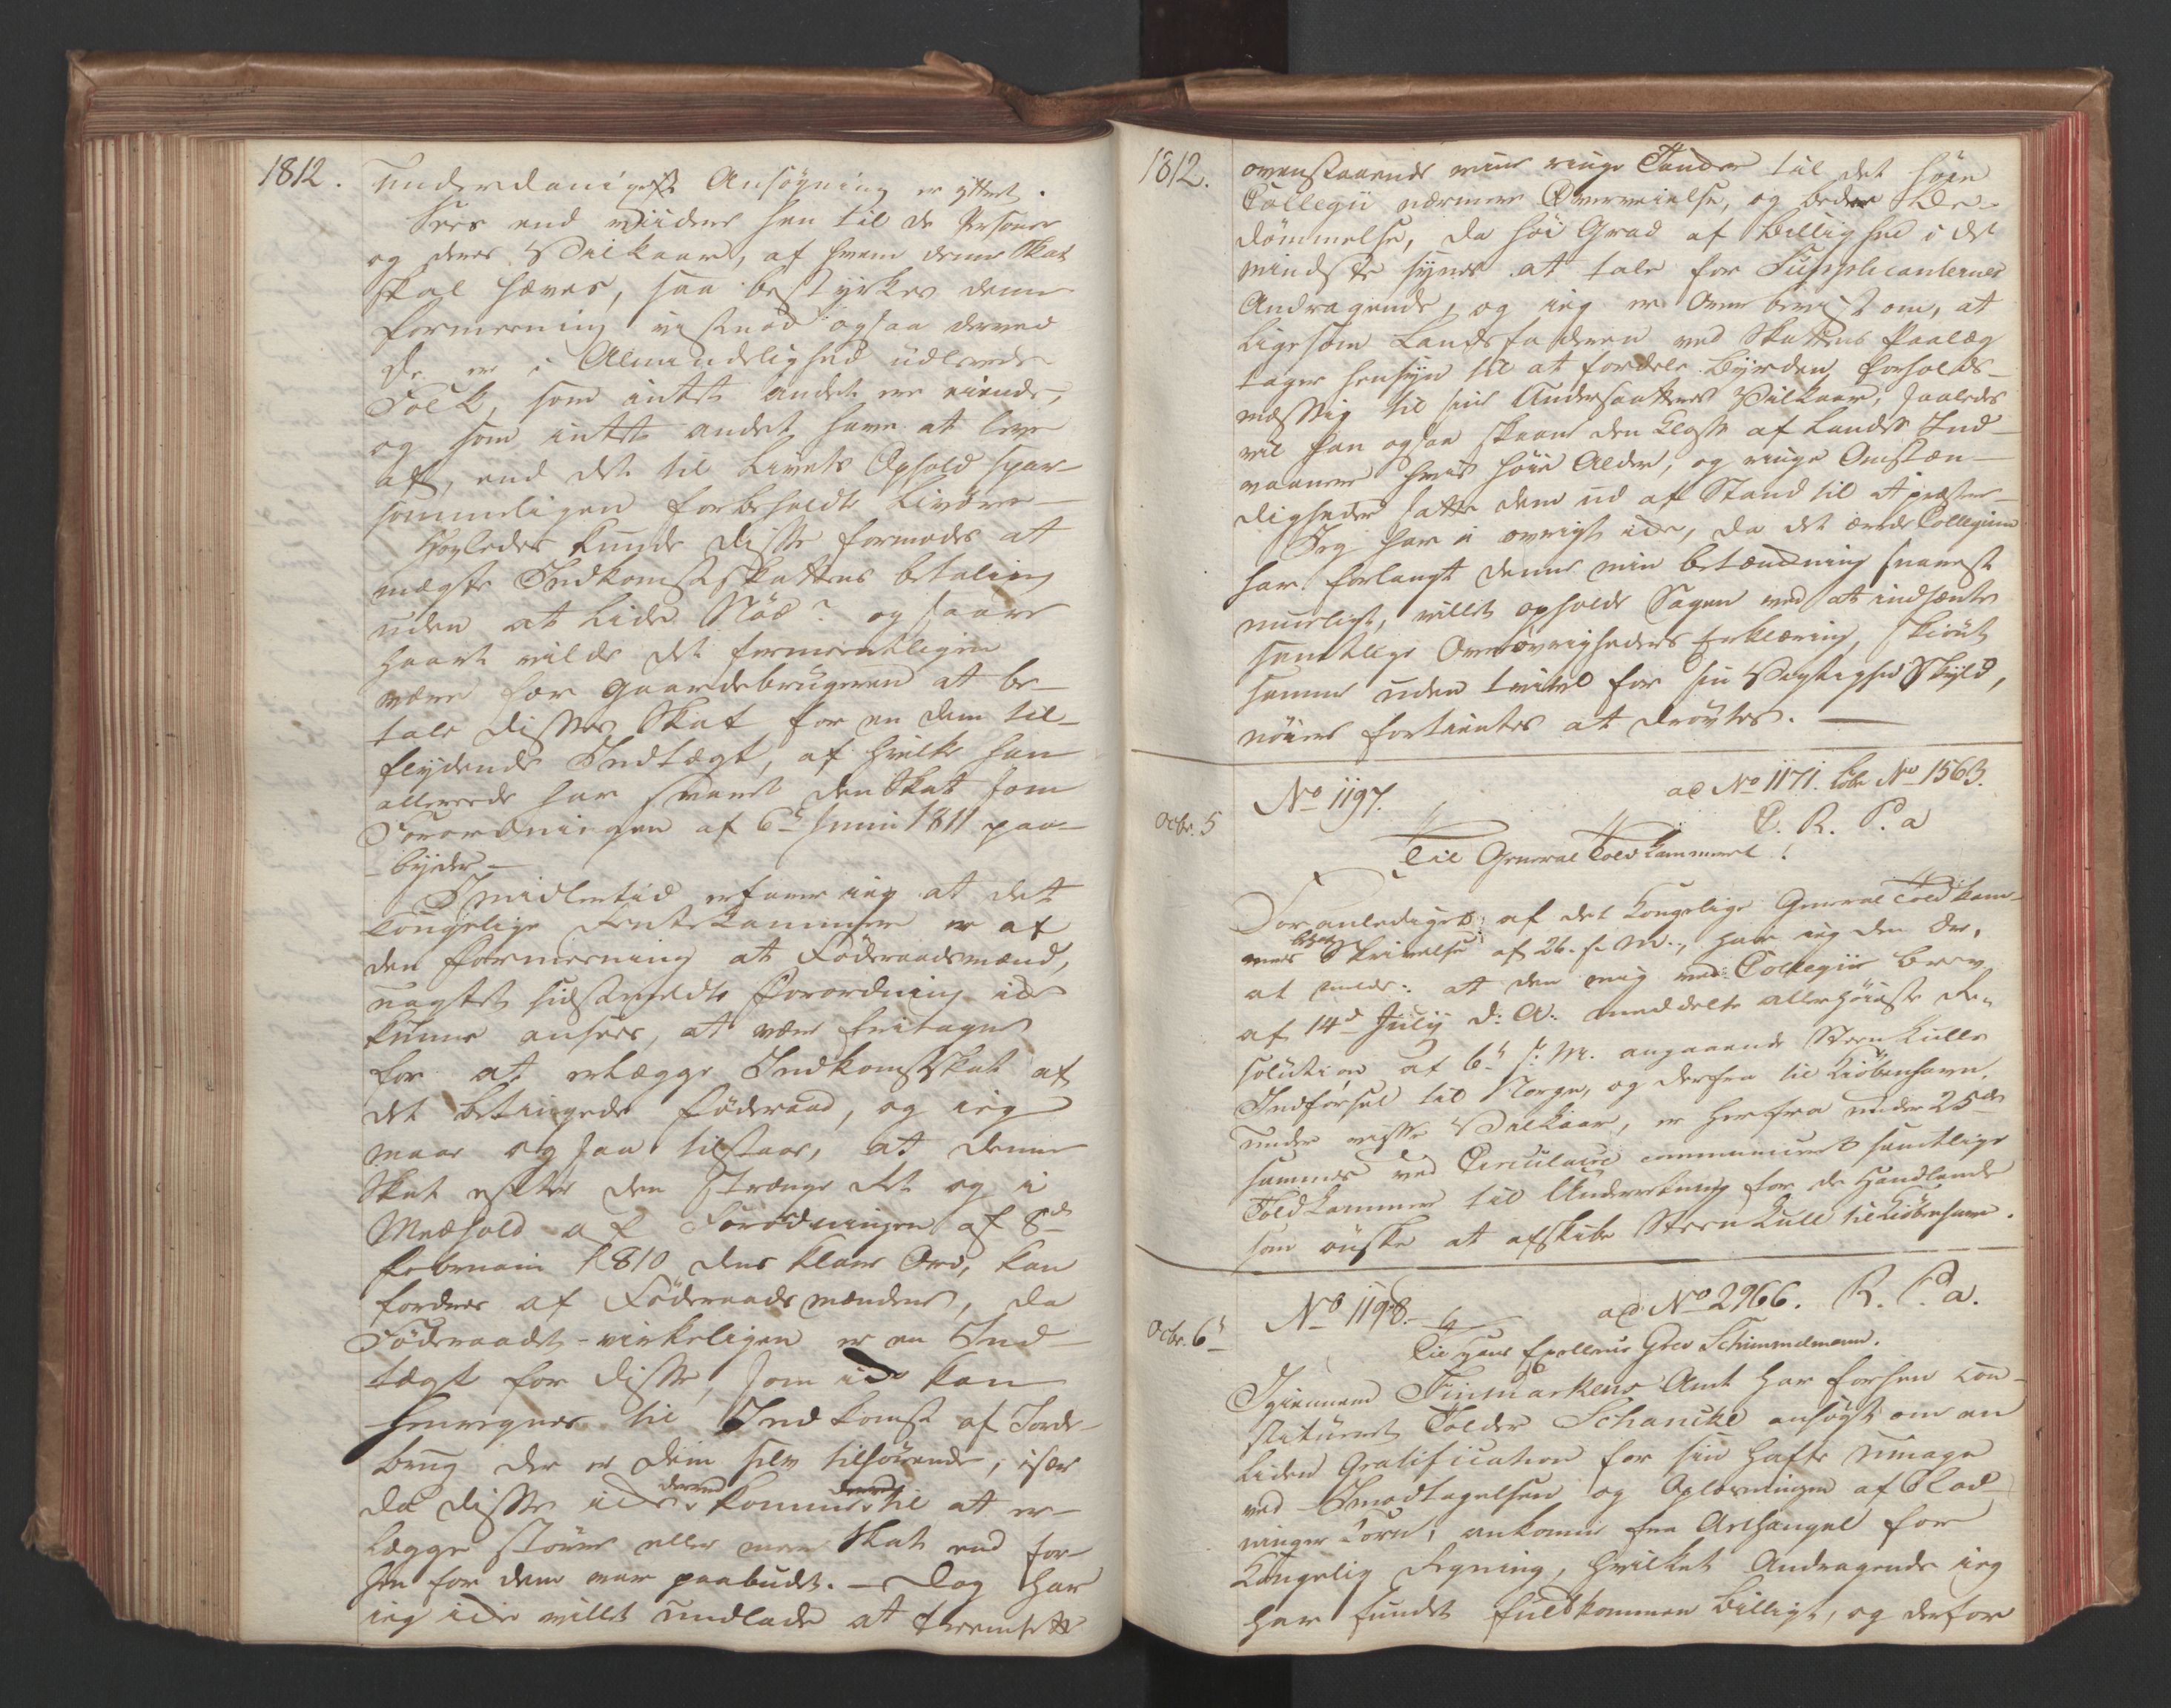 1812.
underdanigste Ansøgning er yttret.
Sees end viidere hen til de Personer
og deres Vilkaar, af hvem denne Skat
skal hæves, saa bestyrkes denne
Formeening vistnok ogsaa derved
De er i Almindelighed udlevede
Folk, som intet andet ere eiende,
og som intet andet have at leve
af, end det til Livets Ophold spar-
sommeligen forbeholdte Livøre-
Hvorledes kunde disse formodes at
mægte Indkomstskattens betaling
uden at lide Nød? og saare
haart vilde det formeentligen
være for Gaardebrugeren at be-
tale disses Skat for en dem til-
flydende Indtægt, af hvilke han
allereede har svaret den Skat som
Forordningen af 6te Junii 1811 paa-
byder-
Imidlertid erfarer ieg at det
Kongelige Rentekammer er af
den Formeening at Føderaadsmænd,
uagtet sidstmeldte Forordning ikke
kunne ansees, at være fritagne
for at erlægge Indkomstskat af
det betingede Føderaad, og ieg
maae ogsaa tilstaae, at denne
Skat efter den strænge Ret og i
Medhold af Forordningen af 8de
Februarii 1810 dens klare Ord, kan
fordres af Føderaadsmændene, da
Føderaadet virkeligen er en Ind-
tægt for disse, som ikke kan
henregnes til Indkomst af Jorde-
brug der er dem selv tilhørende, især
da disse ikke derved komme til at er-
lægge større eller meere Skat end for-
hen for dem var paabudt. - Dog har
ieg ikke villet undlade at fremsætte
1812.
ovenstaaende mine ringe Tanker til det høie
Collegii nærmere Overveielse, og bedre Be-
dømmelse, da høi Grad af Billighed i det
mindste synes at tale for Supplicanternes
Andragende, og ieg er overbeviist om, at
ligesom Landsfaderen ved Skattens Paalæg
tager hensyn til at fordele Byrden forholds-
mæssig til sine Undersaatters Vilkaar, saaledes
vil han ogsaa skaane den Classe af Landets Ind-
vaanere hvis høie Alder, og ringe Omstæn-
digheder satte dem ud af Stand til at præstere
Jeg har i øvrigt ikke, da det ærede Collegium
har forlangt denne min betænkning snarest
mueligt, villet opholde Sagen ved at indhente
samtlige Overøvrigheders Erklæring, skiønt
samme uden tvivl for sin Vigtighed Skyld,
nøiere fortientes at drøvtes. -
No 1197.
ad No 1171. Lobe No 1563.
Octbr. 5
C. R. P. a
Til General Toldkammeret!
Foranlediget af det Kongelige General Toldkam-
mers behag Skrivelse af 26. f. M., har ieg den Ære,
at melde: at den mig med Collegii Brev
af 14de July d: A: meddelte allerhøieste Re-
solution af 6te s: M. angaaende Steenkulls
Indførsel til Norge, og derfra til Kiøbenhavn,
under visse Vilkaar, er herfra under 25de
sammes ved Circulaire communiceret samtlige
Toldkammer til Underretning for de Handlende
som ønske at afskibe Steenkull til Kiøbenhavn.
No 1198.
ad No 2966. R. P. a.
Octbr. 6te
Til Hans Excellence Grev Schimmelmann.
Igiennem Finmarkens Amt har forhen con-
stitueret Tolder Schancke ansøgt om en
liden Gratification for sin hafte Umage
ved Imodtagelsen og Oplosningen af Lad-
ninger Korn, ankomne fra Archangel for
Kongelig Regning, hvilket Andragende ieg
har fundet fuldkommen billigt, og derfor